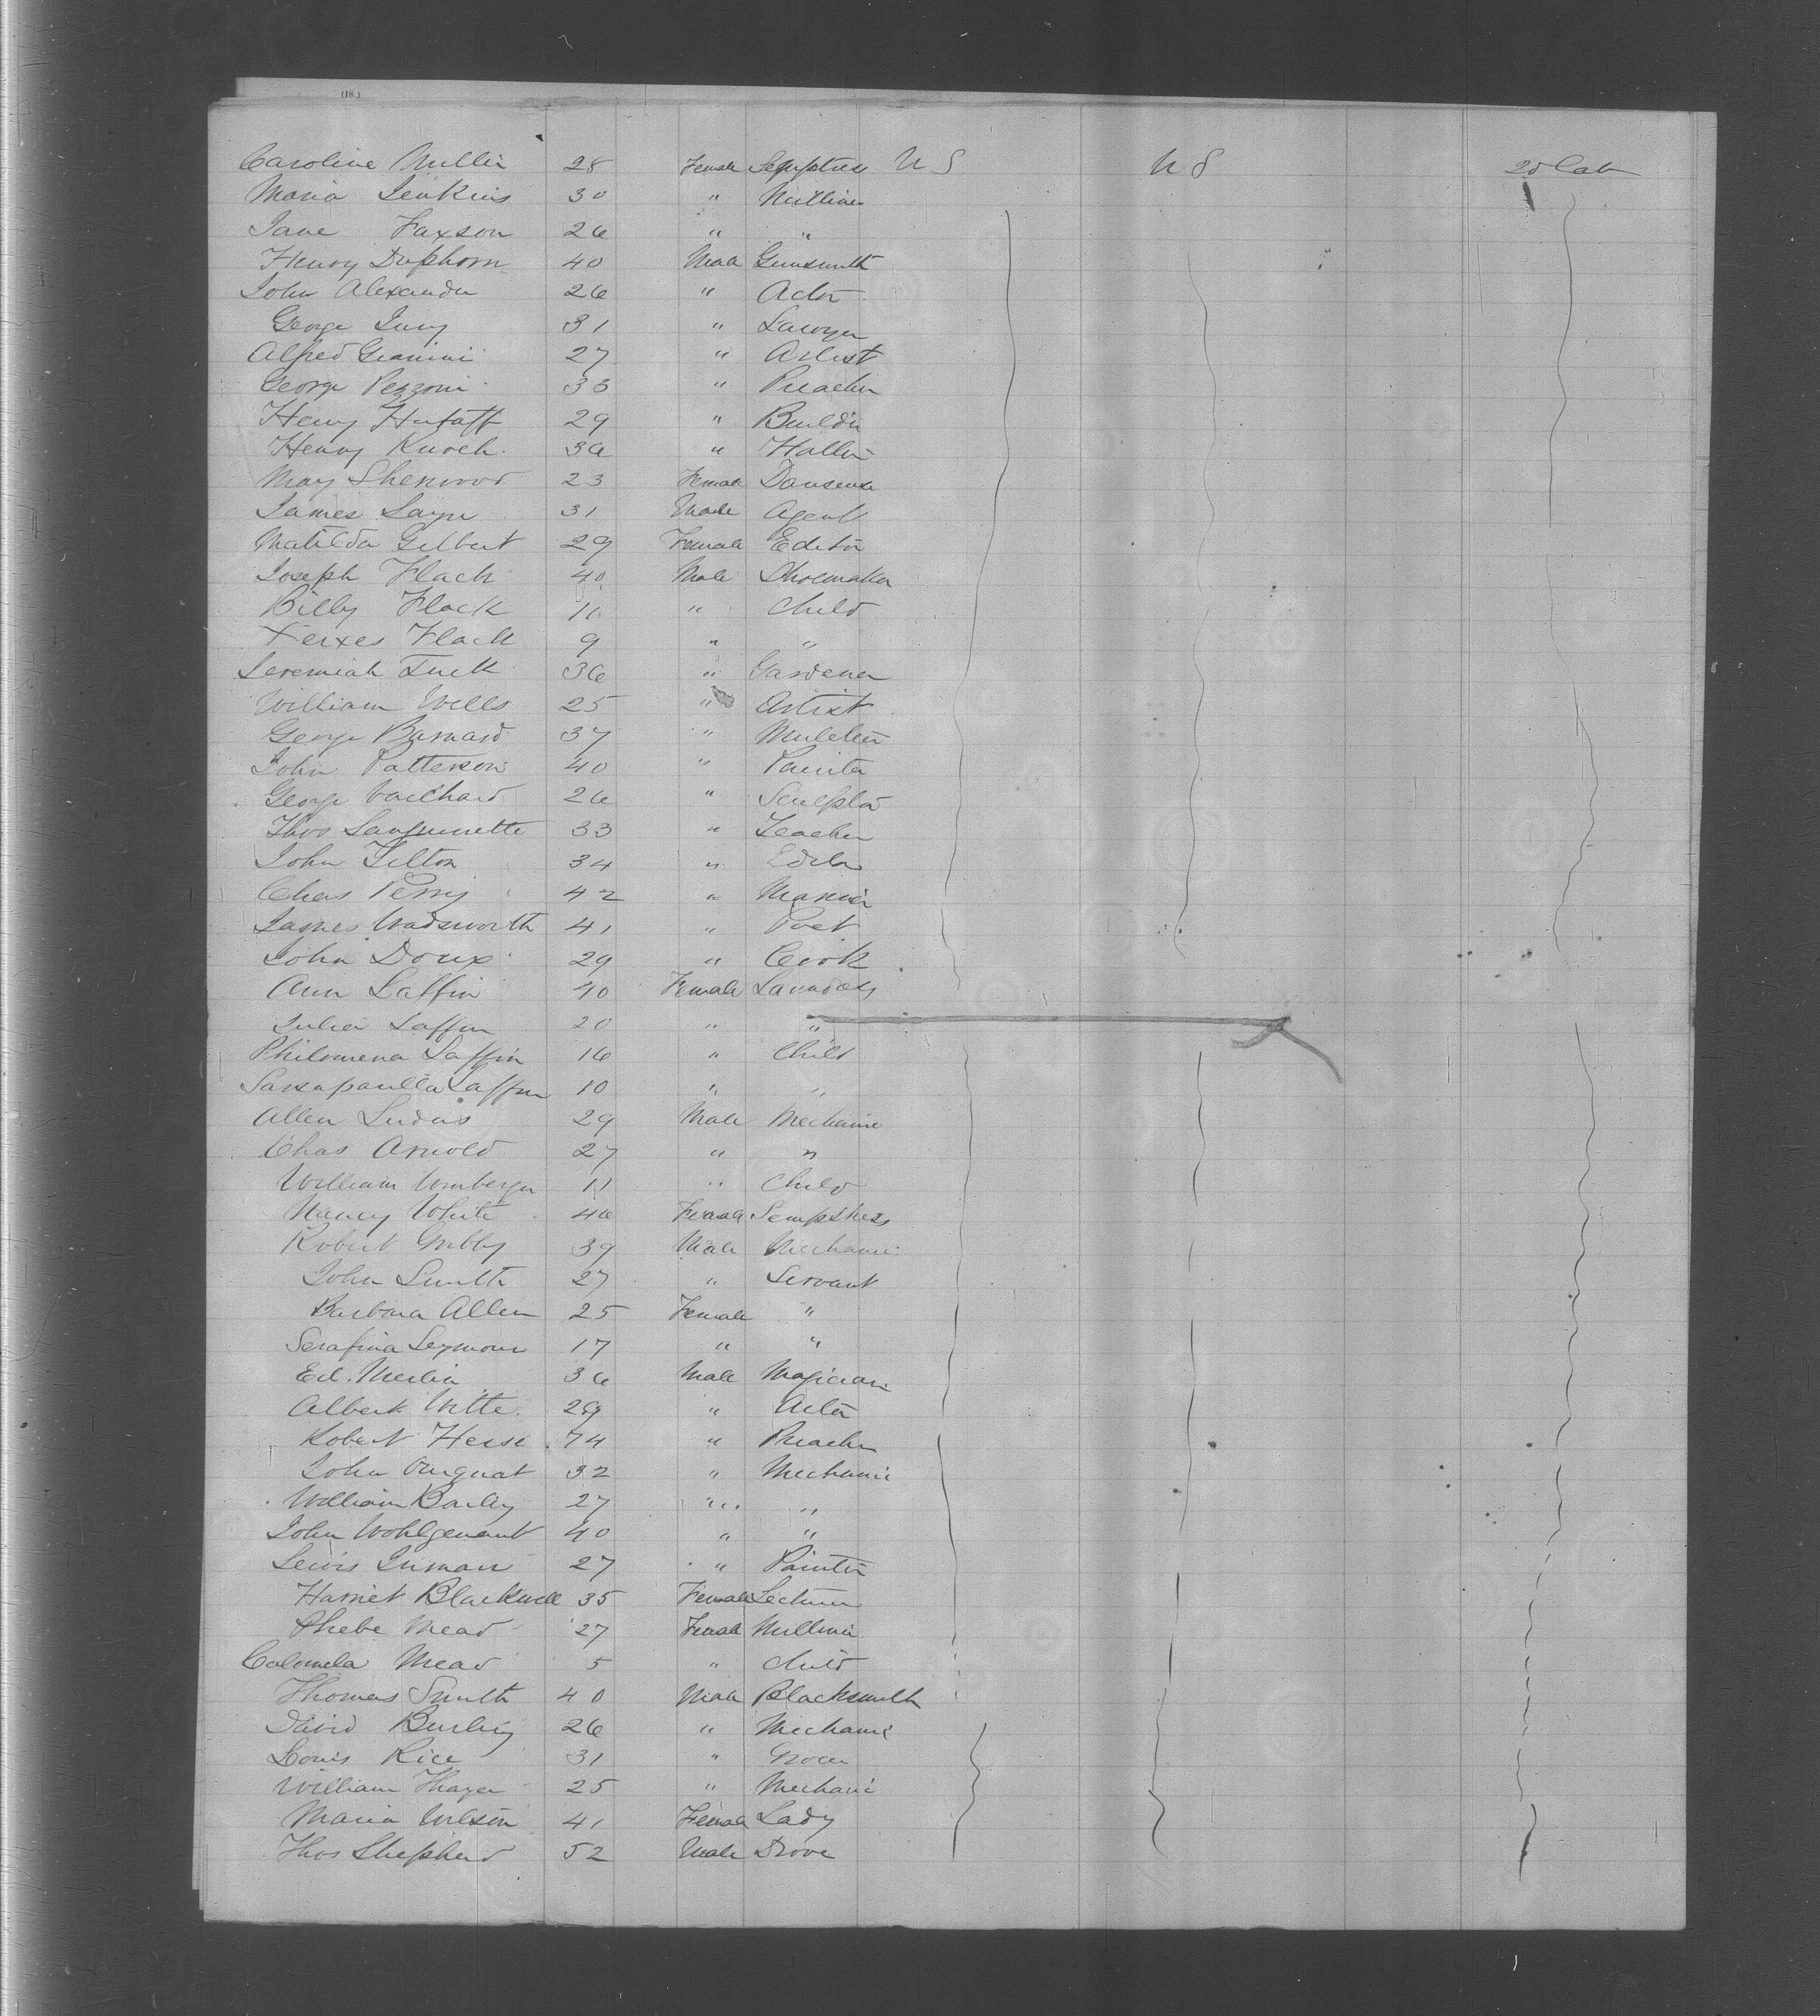 (18.)
Caroline Miller 28 Female Sempstress U S U S 2d Cab
Maria Jenkins 30 " Milliner
Jane Faxson 26 " "
Henry Duphorn 40 Male Gunsmith
John Alexander 26 " Actor
George Jury 31 " Lawyer
Alfred Gianini 27 " Artist
George Pezzoni 33 " Preacher
Henry Hutaff 29 " Builder
Henry Knoch 36 " Hatter
May Sherwood 23 Female Danseuse
James Sayre 31 Male Agent
Matilda Gilbert 29 Female Editor
Joseph Flack 40 Male Shoemaker
Billy Flack 11 " Child
Xerxes Flack 9 " "
Jeremiah Tuck 36 " Gardener
William Wells 25 " Artist
George Barnard 37 " Muleteer
John Patterson 40 " Painter
George 26 " Sculptor
Thos Sanguinette 33 " Teacher
John Tilton 34 " Editor
Chas Perry 42 "
James Wadsworth 41 " Poet
John Doux 29 " Cook
Ann Laffin 40 Female Laundress
Julia Laffin 20 " "
Philomena Laffin 16 " Child
Sarsaparilla Laffin 10 " "
Allen 29 Male Mechanic
Chas Arnold 27 " "
William Umberger 11 " Child
Nancy White 46 Female Sempstress
Robert Gribby 39 Male Mechanic
John Smith 27 " Servant
Barbara Allen 25 Female "
Serafina Seymour 17 " "
Ed. Merlin 36 Male Magician
Albert Witte 29 " Actor
Robert Hesse 74 " Preacher
John 32 " Mechanic
William Barley 27 " "
John Wohlgenant 40 " "
Lewis Inman 27 " Painter
Harriet Blackwell 35 Female Lecturer
Phebe Mead 27 Female Milliner
Calomela Mead 5 " Child
Thomas Smith 40 Male Blacksmith
David Burling 26 " Mechanic
Louis Rice 31 " Grocer
William Thayer 25 " Mechanic
Maria Wilson 41 Female Lady
Thos Shepherd 52 Male Drover